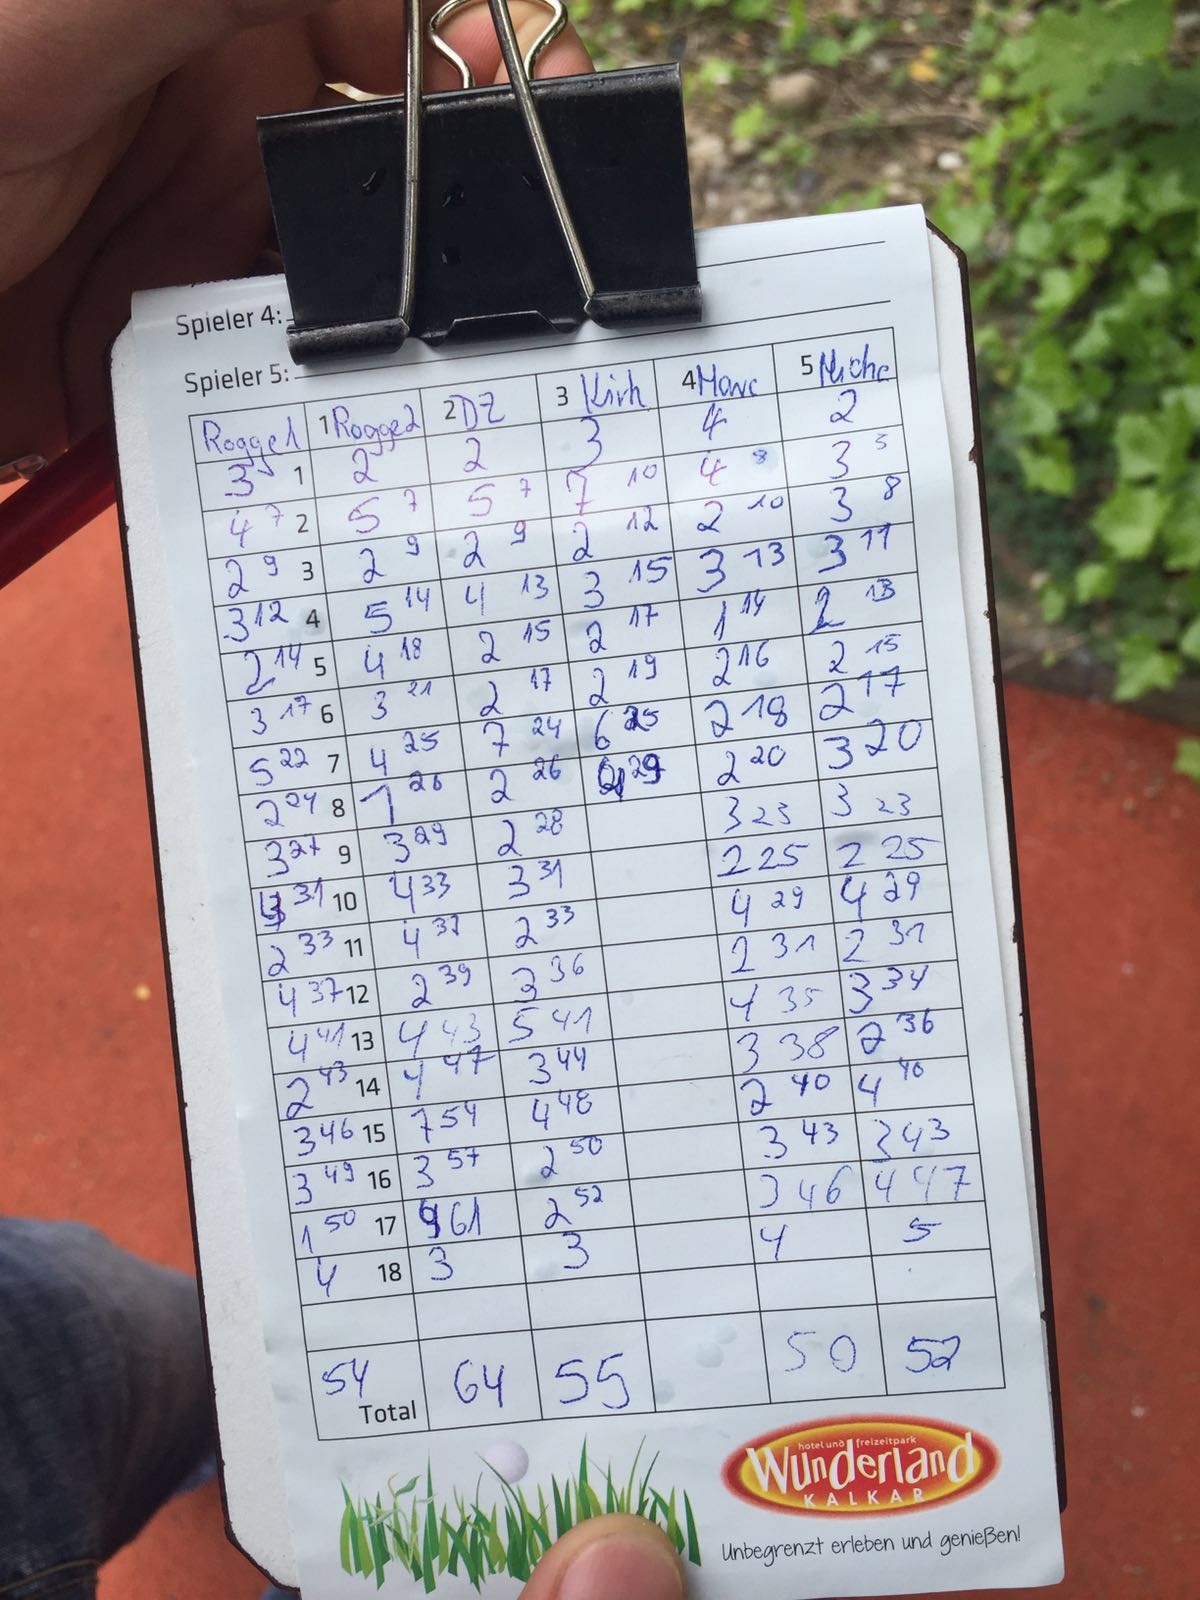 Spieler 4:
Spieler 5:
Rogge1 1 Rogge2 2 DZ 3 Kirh 4 Marc 5 Micha
3 1 2 2 3 4 2
4 7 2 5 7 5 7 7 10 4 8 3 5
2 9 3 2 9 2 9 2 12 2 10 3 8
3 12 4 5 14 4 13 3 15 3 13 3 11
2 14 5 4 18 2 15 2 17 1 14 2 13
3 17 6 3 21 2 17 2 19 2 16 2 15
5 22 7 4 25 7 24 6 25 2 18 2 17
2 24 8 1 26 2 26 4 29 2 20 3 20
3 27 9 3 29 2 28 3 23 3 23
4 31 10 4 33 3 31 2 25 2 25
2 33 11 4 37 2 33 4 29 4 29
4 37 12 2 39 3 36 2 31 2 31
4 41 13 4 43 5 41 4 35 3 34
2 43 14 4 47 3 44 3 38 2 36
3 46 15 7 54 4 48 2 40 4 40
3 49 16 3 57 2 50 3 43 3 43
1 50 17 4 61 2 52 3 46 4 47
4 18 3 3 4 5
54 Total 64 55 50 52
hotel und freizeitpark
Wunderland
KALKAR
Unbegrenzt erleben und genießen!